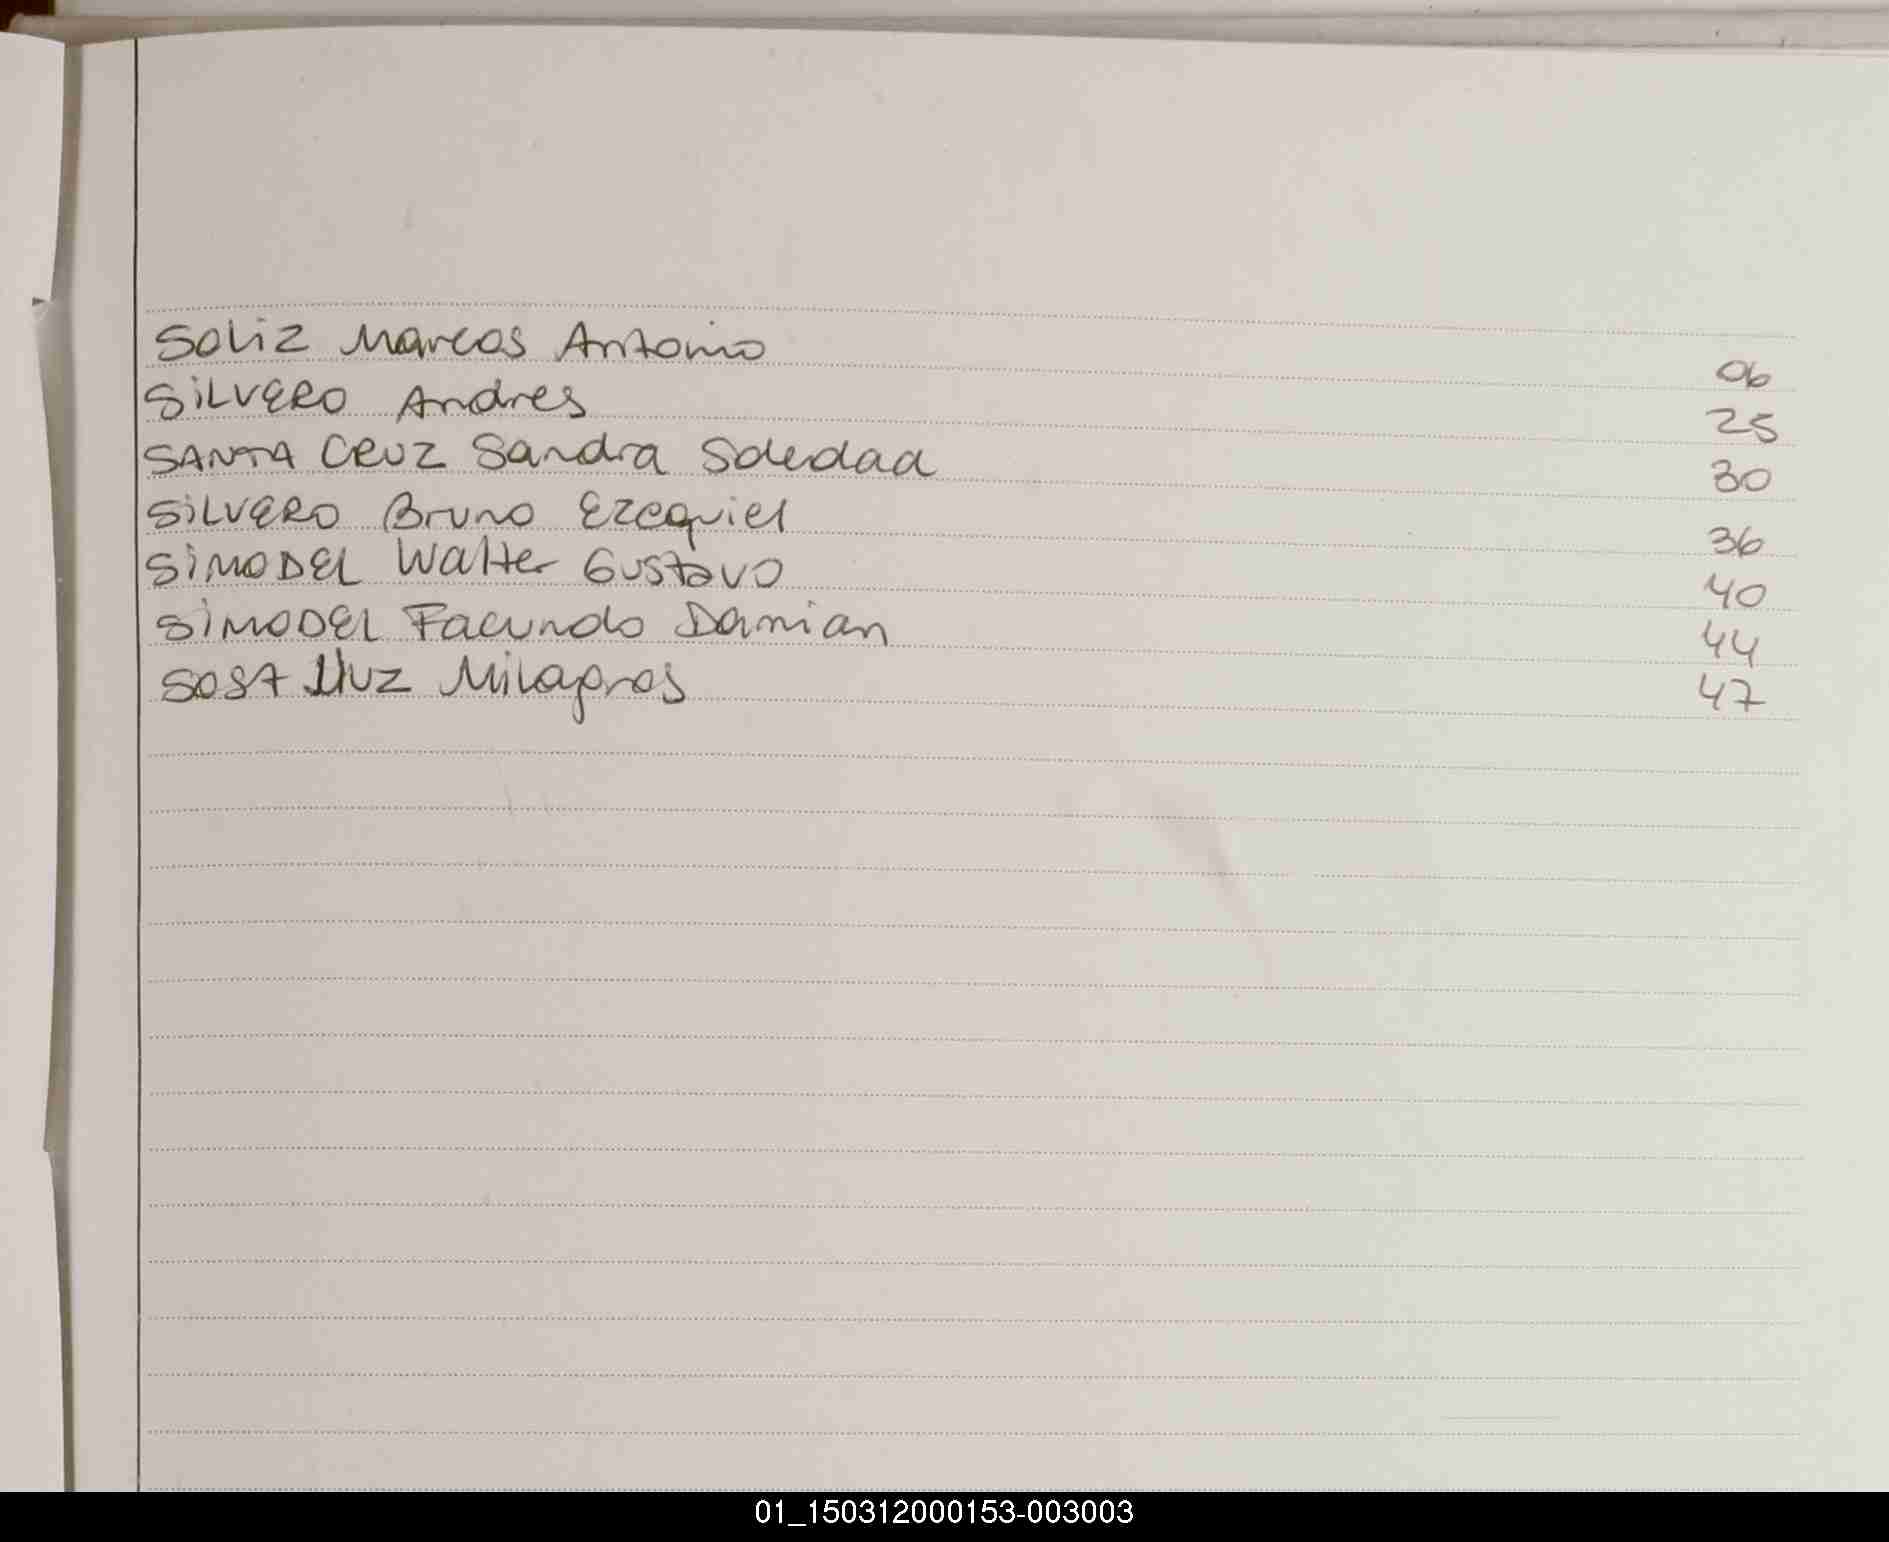 SOLIZ Marcos Antonio 06
SILVERO Andres 25
SANTA CRUZ Sandra Soledad 30
SILVERO Bruno Ezequiel 36
SIMODEL Walter Gustavo 40
SIMODEL Facundo Damian 44
Luz Milagros 47
01_150312000153-003003